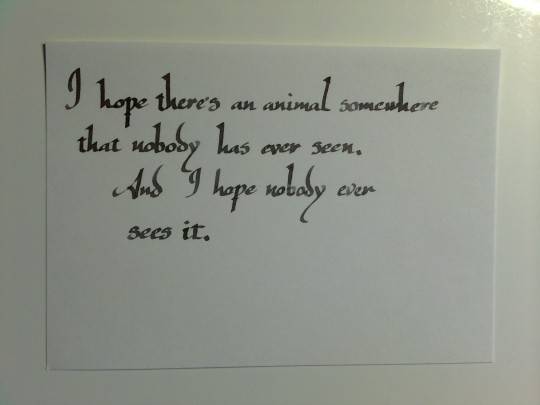 I hope there's an animal somewhere
that nobody has ever seen.
And I hope nobody ever
sees it.